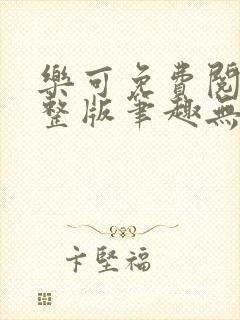 樂可免費閱
整版筆趣無
卞堅福